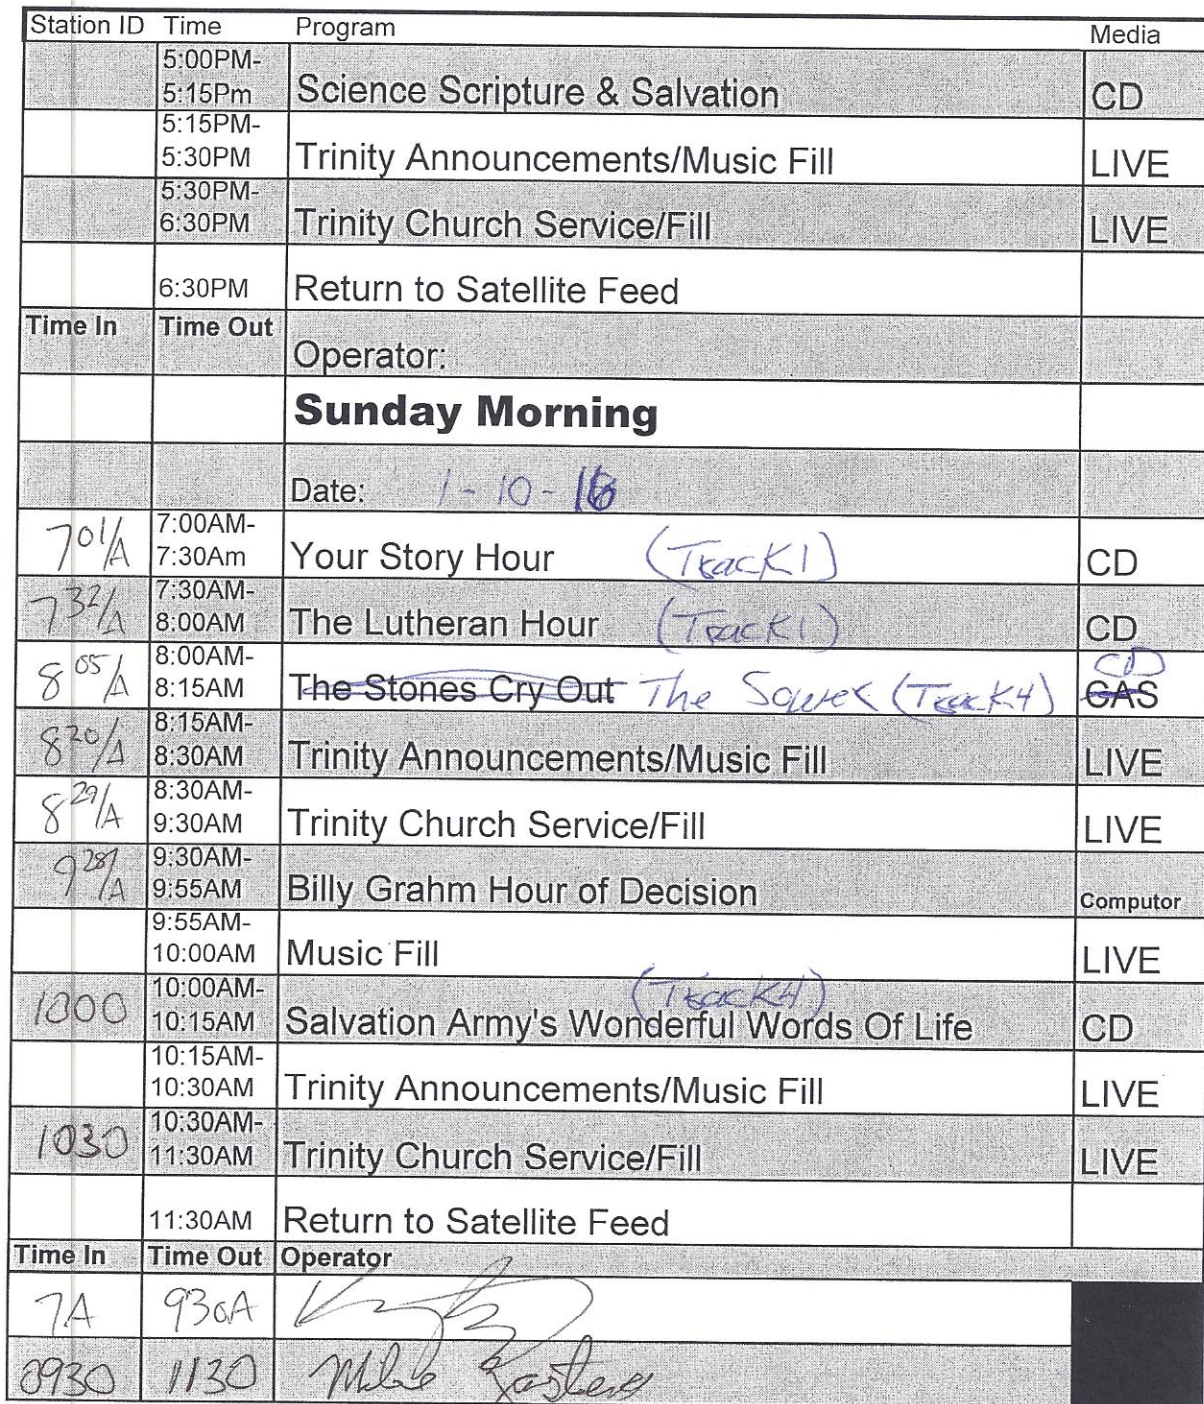 Station ID Time Program Media
5:00PM-
5:15Pm Science Scripture & Salvation CD
5:15PM-
5:30PM Trinity Announcements/Music Fill LIVE
5:30PM-
6:30PM Trinity Church Service/Fill LIVE
6:30PM Return to Satellite Feed
Time In Time Out
Operator:
Sunday Morning
Date: 1-10-16
7:00AM-
701/A 7:30Am Your Story Hour (Track 1) CD
7:30AM-
732/A 8:00AM The Lutheran Hour (Track 1) CD
8:00AM- CD
805/A 8:15AM The Stones Cry Out The Sower (Track 4) CAS
8:15AM-
820/A 8:30AM Trinity Announcements/Music Fill LIVE
8:30AM-
829/A 9:30AM Trinity Church Service/Fill LIVE
9:30AM-
928/A 9:55AM Billy Grahm Hour of Decision Computor
9:55AM-
10:00AM Music Fill LIVE
10:00AM- (Track 4)
1000 10:15AM Salvation Army's Wonderful Words Of Life CD
10:15AM-
10:30AM Trinity Announcements/Music Fill LIVE
10:30AM-
1030 11:30AM Trinity Church Service/Fill LIVE
11:30AM Return to Satellite Feed
Time In Time Out Operator
7A 930A
0930 1130 Mike